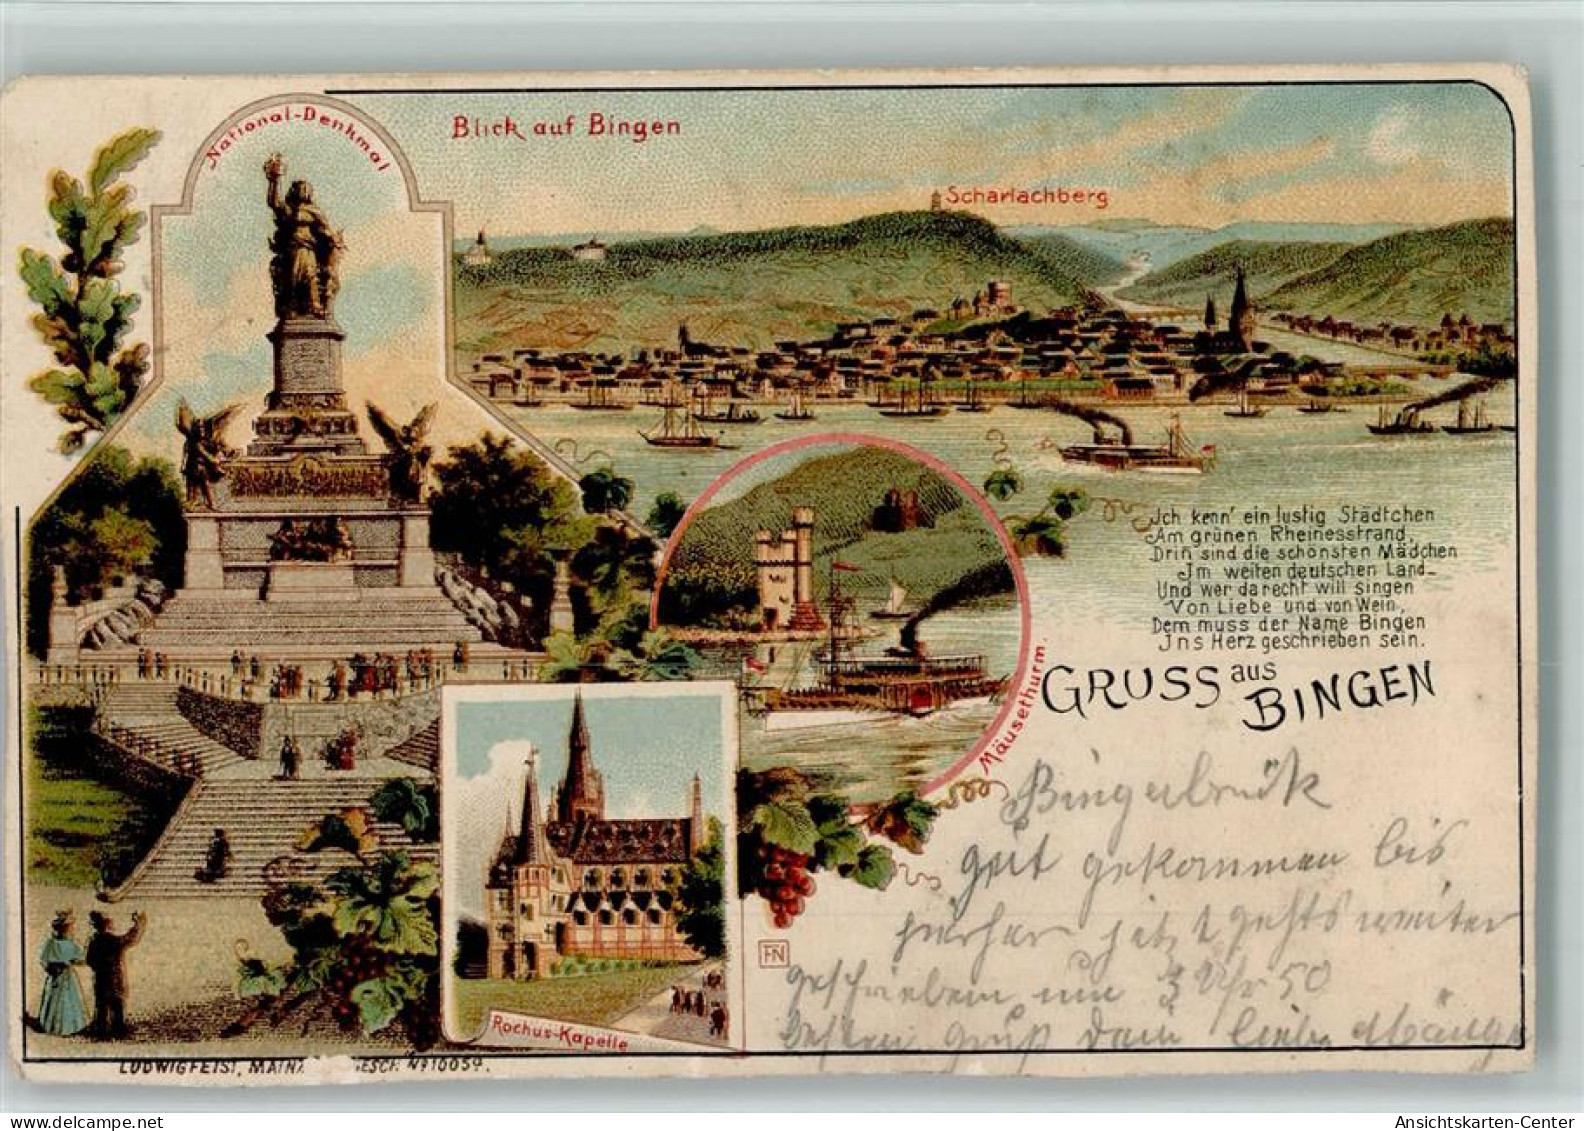 National-Denkmal
Blick auf Bingen
Scharlachberg
Jch kenn' ein lustig Städtchen
Am grünen Rheinesstrand,
Drin sind die schönsten Mädchen
Jm weiten deutschen Land_
Und wer da recht will singen
Von Liebe und von Wein,
Dem muss der Name Bingen
Jns Herz geschrieben sein.
GRUSS aus
BINGEN
Mäusethurm.
Bingerbrück
gut gekommen bis
hierher jetzt gehts weiter
geschrieben um 3 Uhr 50
Besten Gruß Dein
FN
Rochus-Kapelle
LUDWIG FEIST, MAINZ GESCH. No 10059.
Ansichtskarten-Center